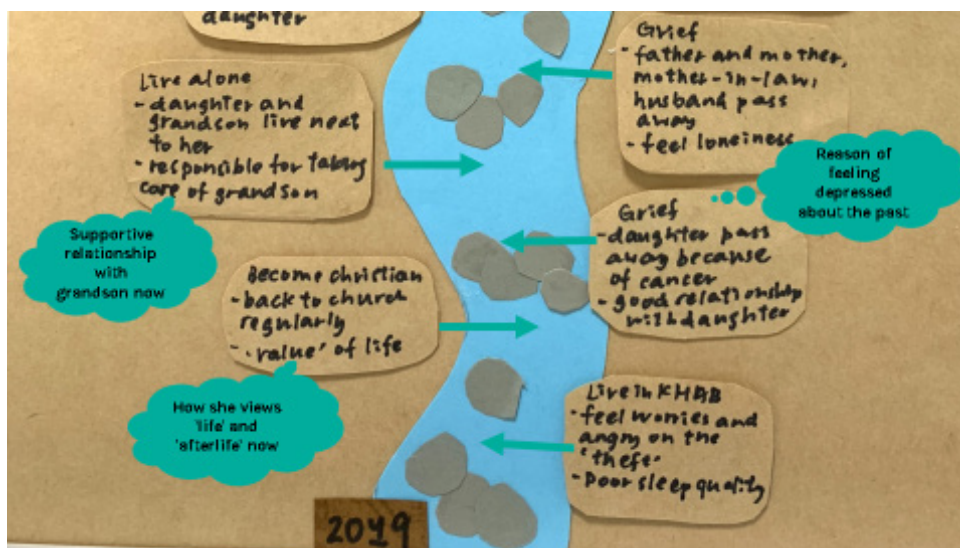 daughter
Live alone
- daughter and
grandson live next
to her
- responsible for taking
care of grandson
Supportive
relationship
with
grandson now
Become christian
- back to church
regularly
- 'value' of life
How she views
'life' and
'afterlife' now
Grief
- father and mother,
mother-in-law,
husband pass
away
- feel loneiness
Reason of
feeling
depressed
about the past
Grief
- daughter pass
away because
of cancer
- good relationship
with daughter
Live in KHAB
- feel worries and
angry on the
'theft'
- Poor sleep quality
2019